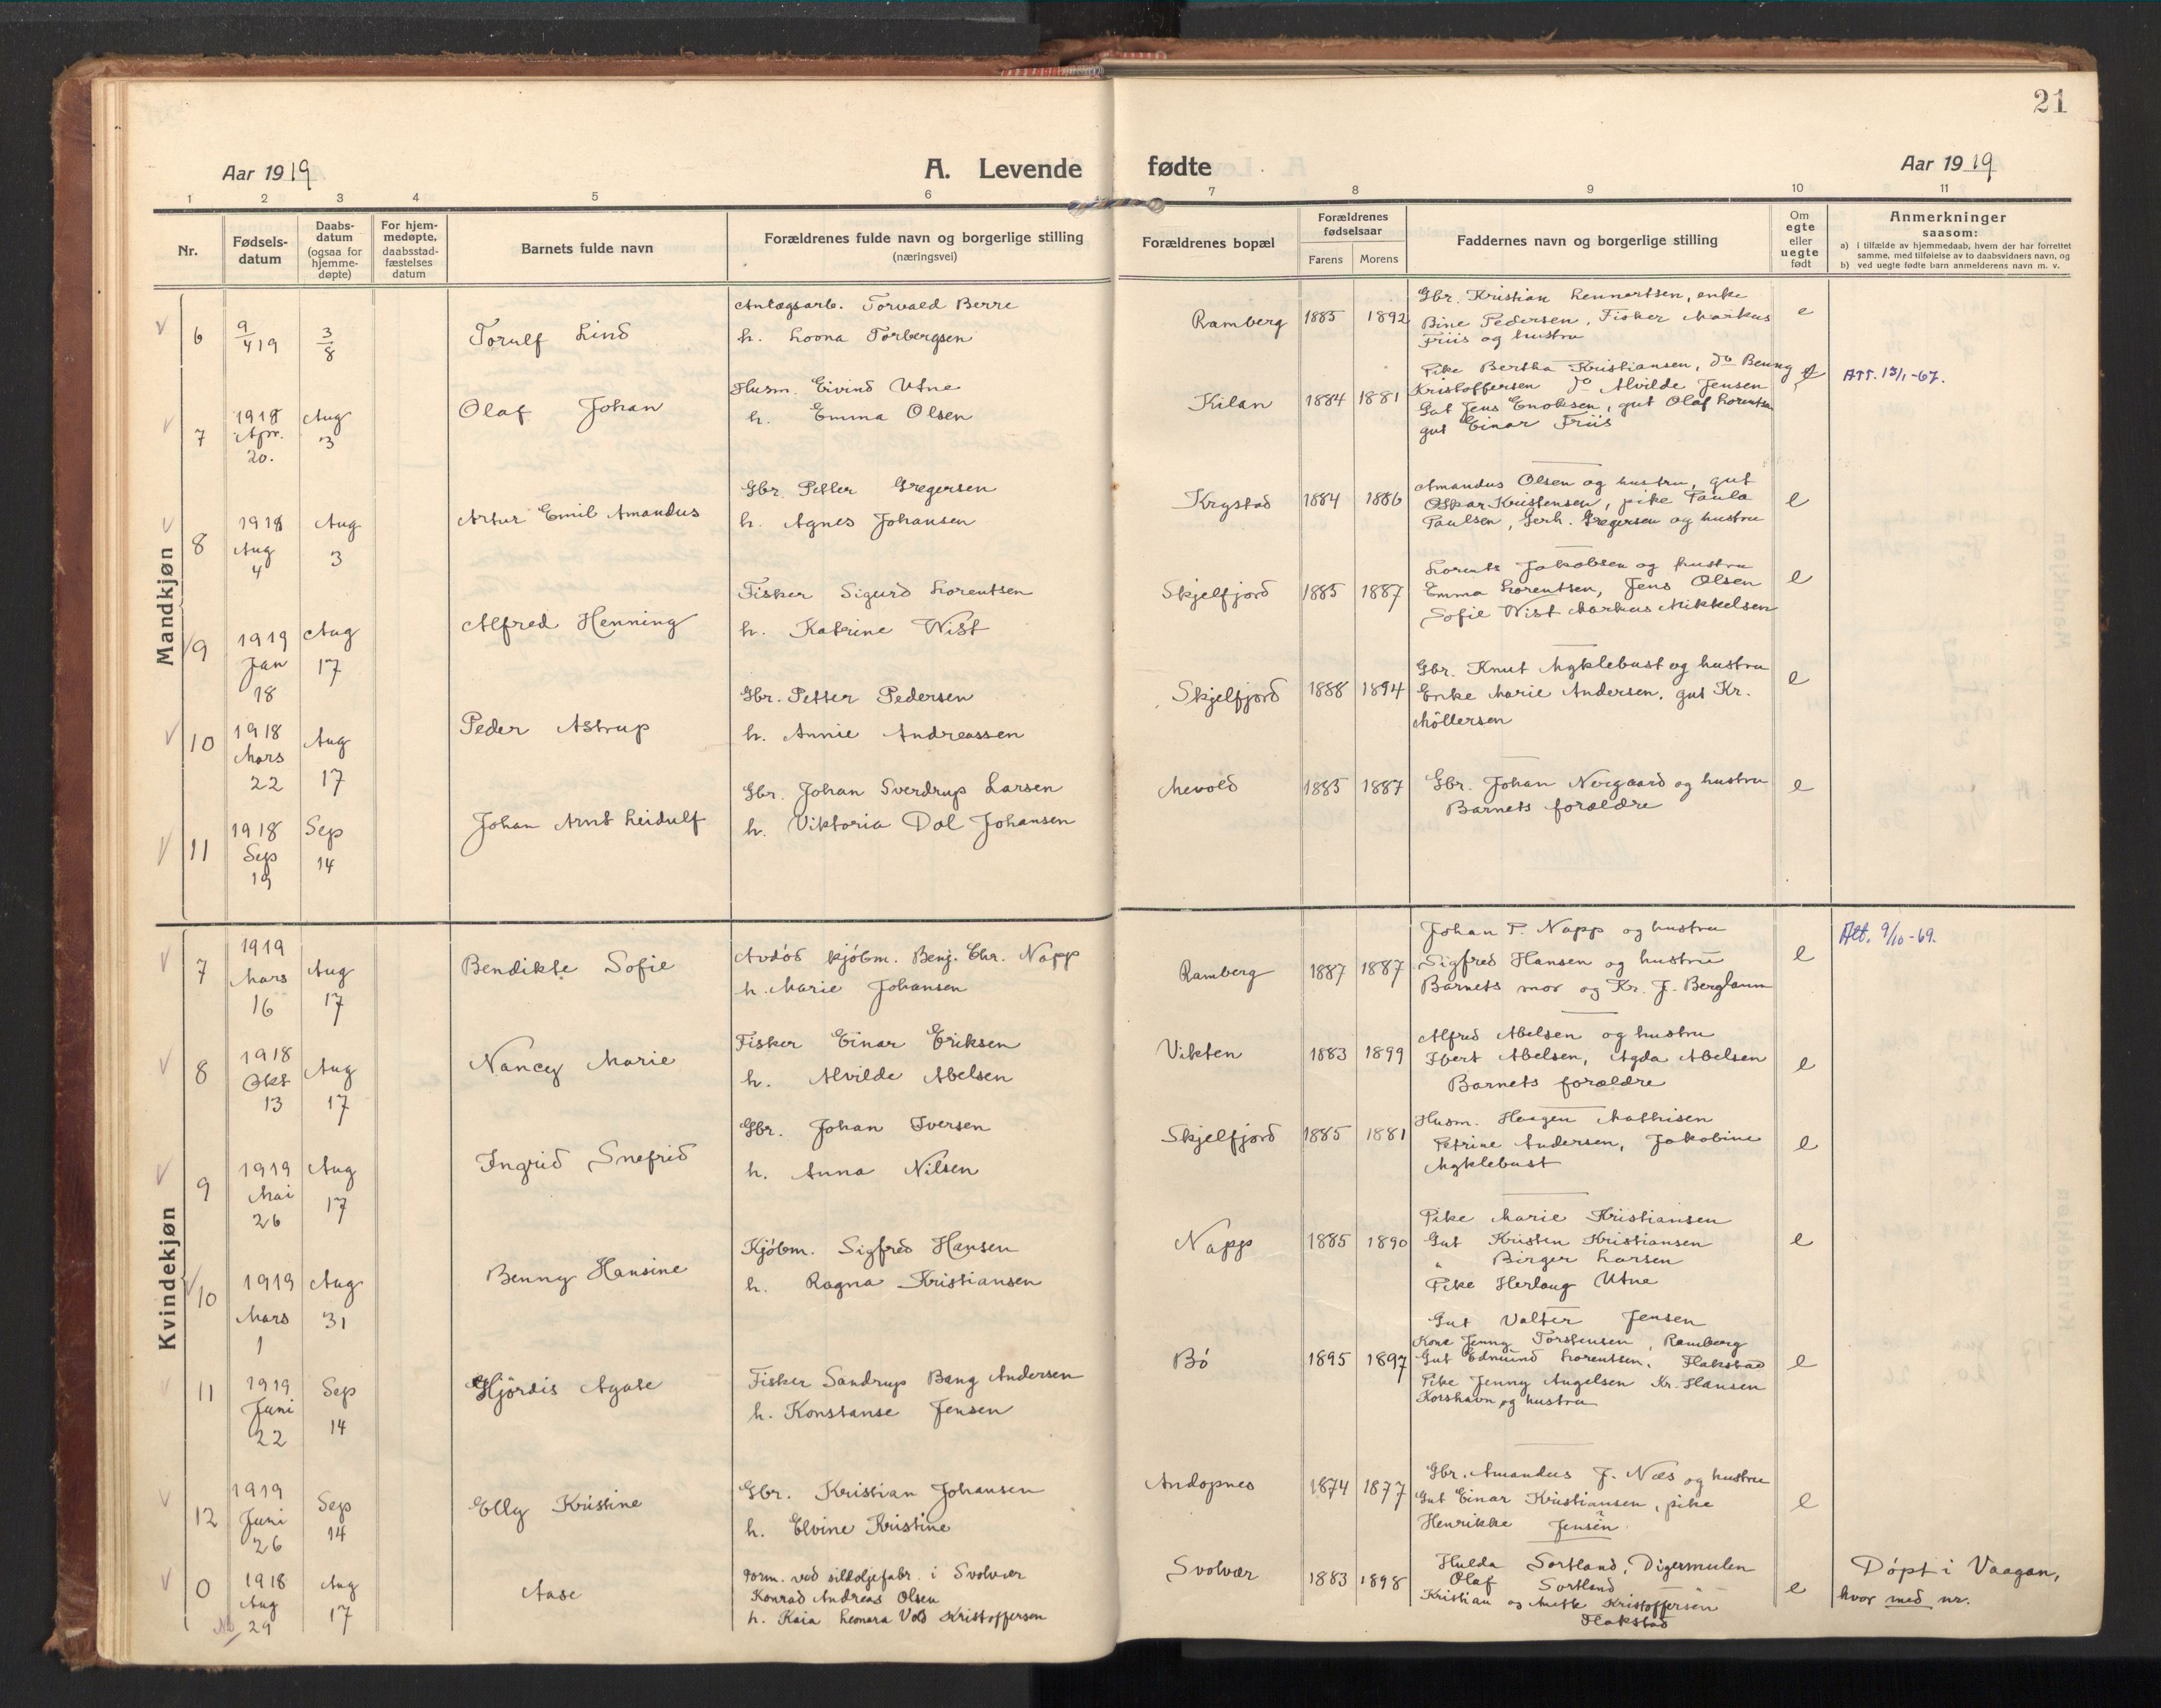 21
Aar 1919
A. Levende
fødte
Aar 1919
1 2 3 4 5 6 7 8 9 10 11
Nr.
Fødsels-
datum
Daabs-
datum
(ogsaa for
hjemme-
døpte)
For hjem-
medøpte,
daabsstad-
fæstelses
datum
Barnets fulde navn
Forældrenes fulde navn og borgerlige stilling
(næringsvei)
Forældrenes bopæl
Forældrenes
fødselsaar
Farens Morens
Faddernes navn og borgerlige stilling
Om
egte
eller
uegte
født
Anmerkninger
saasom:
a) i tilfælde av hjemmedaab, hvem der har forrettet
samme, med tilføielse av to daabsvidners navn, og
b) ved uegte fødte barn anmelderens navn m. v.
Mandkjøn
6
9/4 19
3/8
Torulf Lind
Anlægsarb. Torvald Berre
h. Loona Torbergsen
Ramberg
1885 1892
Gbr. Kristian Lennartsen, enke
Bine Pedersen, Fisker Markus
Friis og hustru
e
7
1918
Apr.
20.
Aug
3
Olaf Johan
Husm. Eivind Utne
h. Emma Olsen
Kilan
1884 1881
Pike Bertha Kristiansen, do Benny
Kristoffersen do Alvilde Jensen
Gut Jens Enoksen, gut Olaf Lorentsen
gut Einar Friis
e
Att. 13/1-67.
8
1918
Aug
4
Aug
3
Artur Emil Amandus
Gbr. Petter Gregersen
h. Agnes Johansen
Krystad
1884 1886
Amandus Olsen og hustru, gut
Oskar Kristensen, pike Paula
Paulsen, Gerh. Gregersen og hustru
e
9
1919
Jan
18
Aug
17
Alfred Henning
Fisker Sigurd Lorentsen
h. Katrine Wist
Skjelfjord
1885 1887
Lorents Jakobsen og hustru
Emma Lorentsen, Jens Olsen
Sofie Wist Markus Mikkelsen
e
10
1918
Mars
22
Aug
17
Peder Astrup
Gbr. Petter Pedersen
h. Annie Andreassen
Skjelfjord
1888 1894
Gbr. Knut Myklebust og hustru
Enke Marie Andersen, gut Kr.
Möllersen
e
11
1918
Sep
19
Sep
14
Johan Arnt Leidulf
Gbr. Johan Sverdrup Larsen
h. Viktoria Dal Johansen
Mevold
1885 1887
Gbr. Johan Norgaard og hustru
Barnets forældre
e
Kvindekjøn
7
1919
Mars
16
Aug
17
Bendikte Sofie
Avdöd kjöbm. Benj. Chr. Napp
h. Marie Johansen
Ramberg
1887 1887
Johan P. Napp og hustru
Sigfred Hansen og hustru
Barnets mor og Kr. J. Berglann
e
Att. 9/10-69.
8
1918
Okt
13
Aug
17
Nancy Marie
Fisker Einar Eriksen
h. Alvilde Abelsen
Vikten
1883 1899
Alfred Abelsen og hustru
Ebert Abelsen, Agda Abelsen
Barnets forældre
e
9
1919
Mai
26
Aug
17
Ingrid Snefrid
Gbr. Johan Iversen
h. Anna Nilsen
Skjelfjord
1885 1881
Husm. Haagen Mathisen
Petrine Andersen, Jakobine
Myklebust
e
10
1919
Mars
1
Aug
31
Benny Hansine
Kjöbm. Sigfred Hansen
h. Ragna Kristiansen
Napp
1885 1890
Pike Marie Kristiansen
Gut Kristen Kristiansen
" Birger Larsen
Pike Herlaug Utne
e
11
1919
Juni
22
Sep
14
Hjördis Agate
Fisker Sandrup Bang Andersen
h. Konstanse Jensen
Bö
1895 1897
Gut Valter Jensen
Kone Jenny Torstensen, Ramberg
Gut Edmund Lorentsen, Flakstad
Pike Jenny Angelsen Kr. Hansen
Korshavn og hustru
e
12
1919
Juni
26
Sep
14
Elly Kristine
Gbr. Kristian Johansen
h. Elvine Kristine
Andopnes
1874 1877
Gbr. Amandus J. Næs og hustru
Gut Einar Kristiansen, pike
Henrikke Jensen.
e
0
1918
Aug
29
Aug
17
Aase
Form. ved sildoljefabr. i Svolvær
Konrad Andreas Olsen
h. Kaia Leonara Vold Kristoffersen
Svolvær
1883 1898
Hulda Sortland, Digermulen
Olaf Sortland "
Kristian og Anette Kristoffersen
Flakstad
e
Döpt i Vaagan,
hvor med nr.